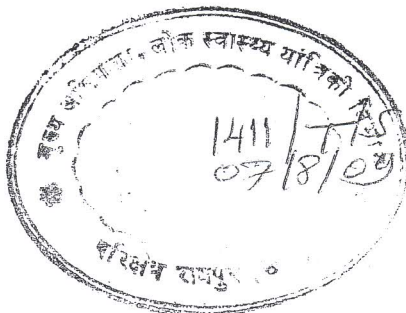 मुख्य अभियंता, लोक स्वास्थ्य यांत्रिकी
1411/T/S
07/8/09
परिक्षेत्र रायपुर